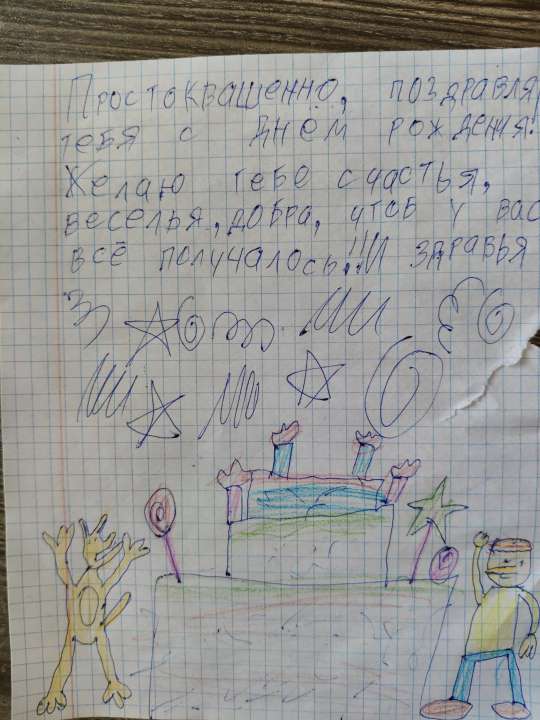 Простоквашенно, поздравля
тебя с днём рождения!
Желаю тебе счастья,
веселья, добра, чтоб у вас
всё получалось!!И здравья